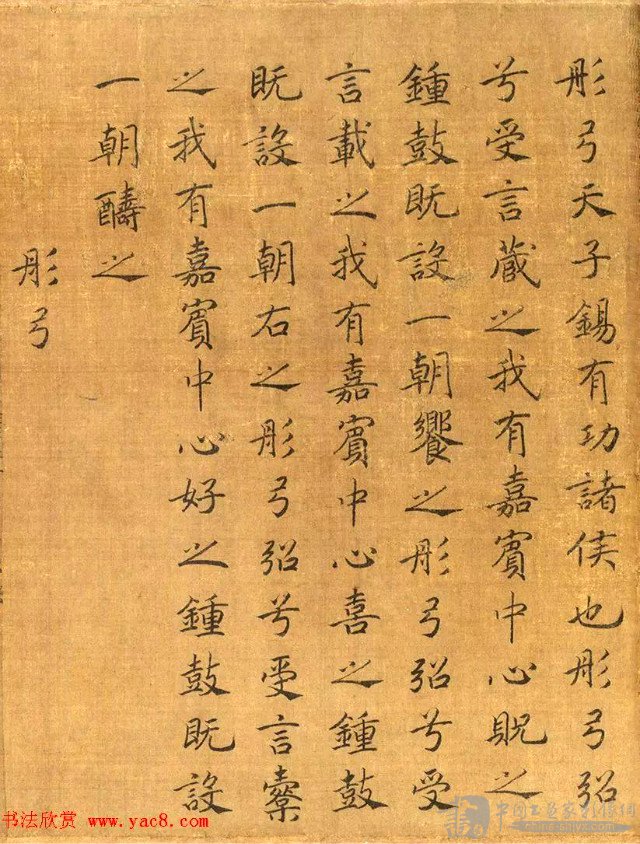 彤弓天子錫有功諸侯也彤弓弨
兮受言藏之我有嘉賓中心貺之
鍾鼓既設一朝饗之彤弓弨兮受
言載之我有嘉賓中心喜之鍾鼓
既設一朝右之彤弓弨兮受言櫜
之我有嘉賓中心好之鍾鼓既設
一朝醻之
彤弓
书法欣赏 www.yac8.com